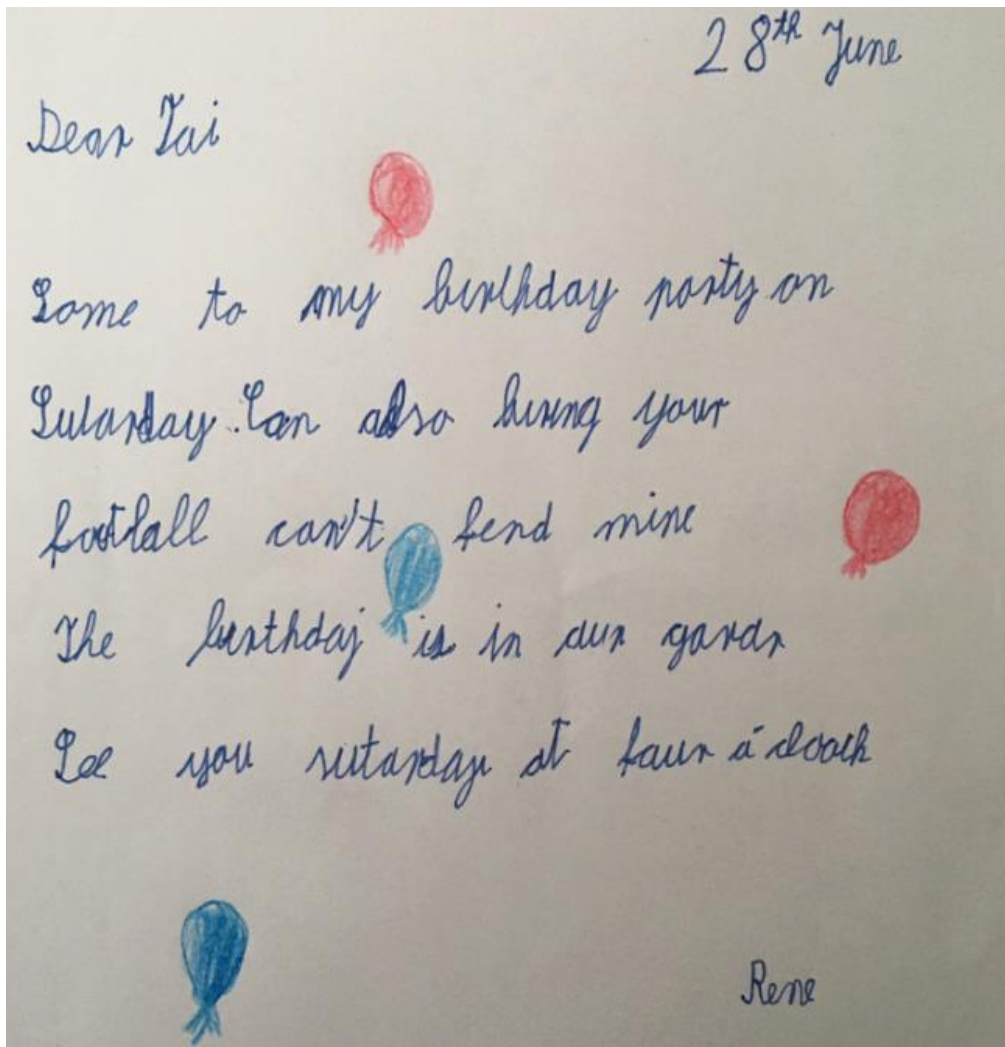 28th June
Dear Tai
Come to my birthday party on
Suturday. Can also buring your
football can't fend mine
The burthday is in our gardr
See you sutarday at four o'clock
Rene